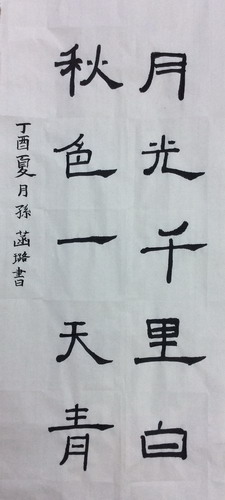 月光千里白
秋色一天青
丁酉夏月孫菡璐書